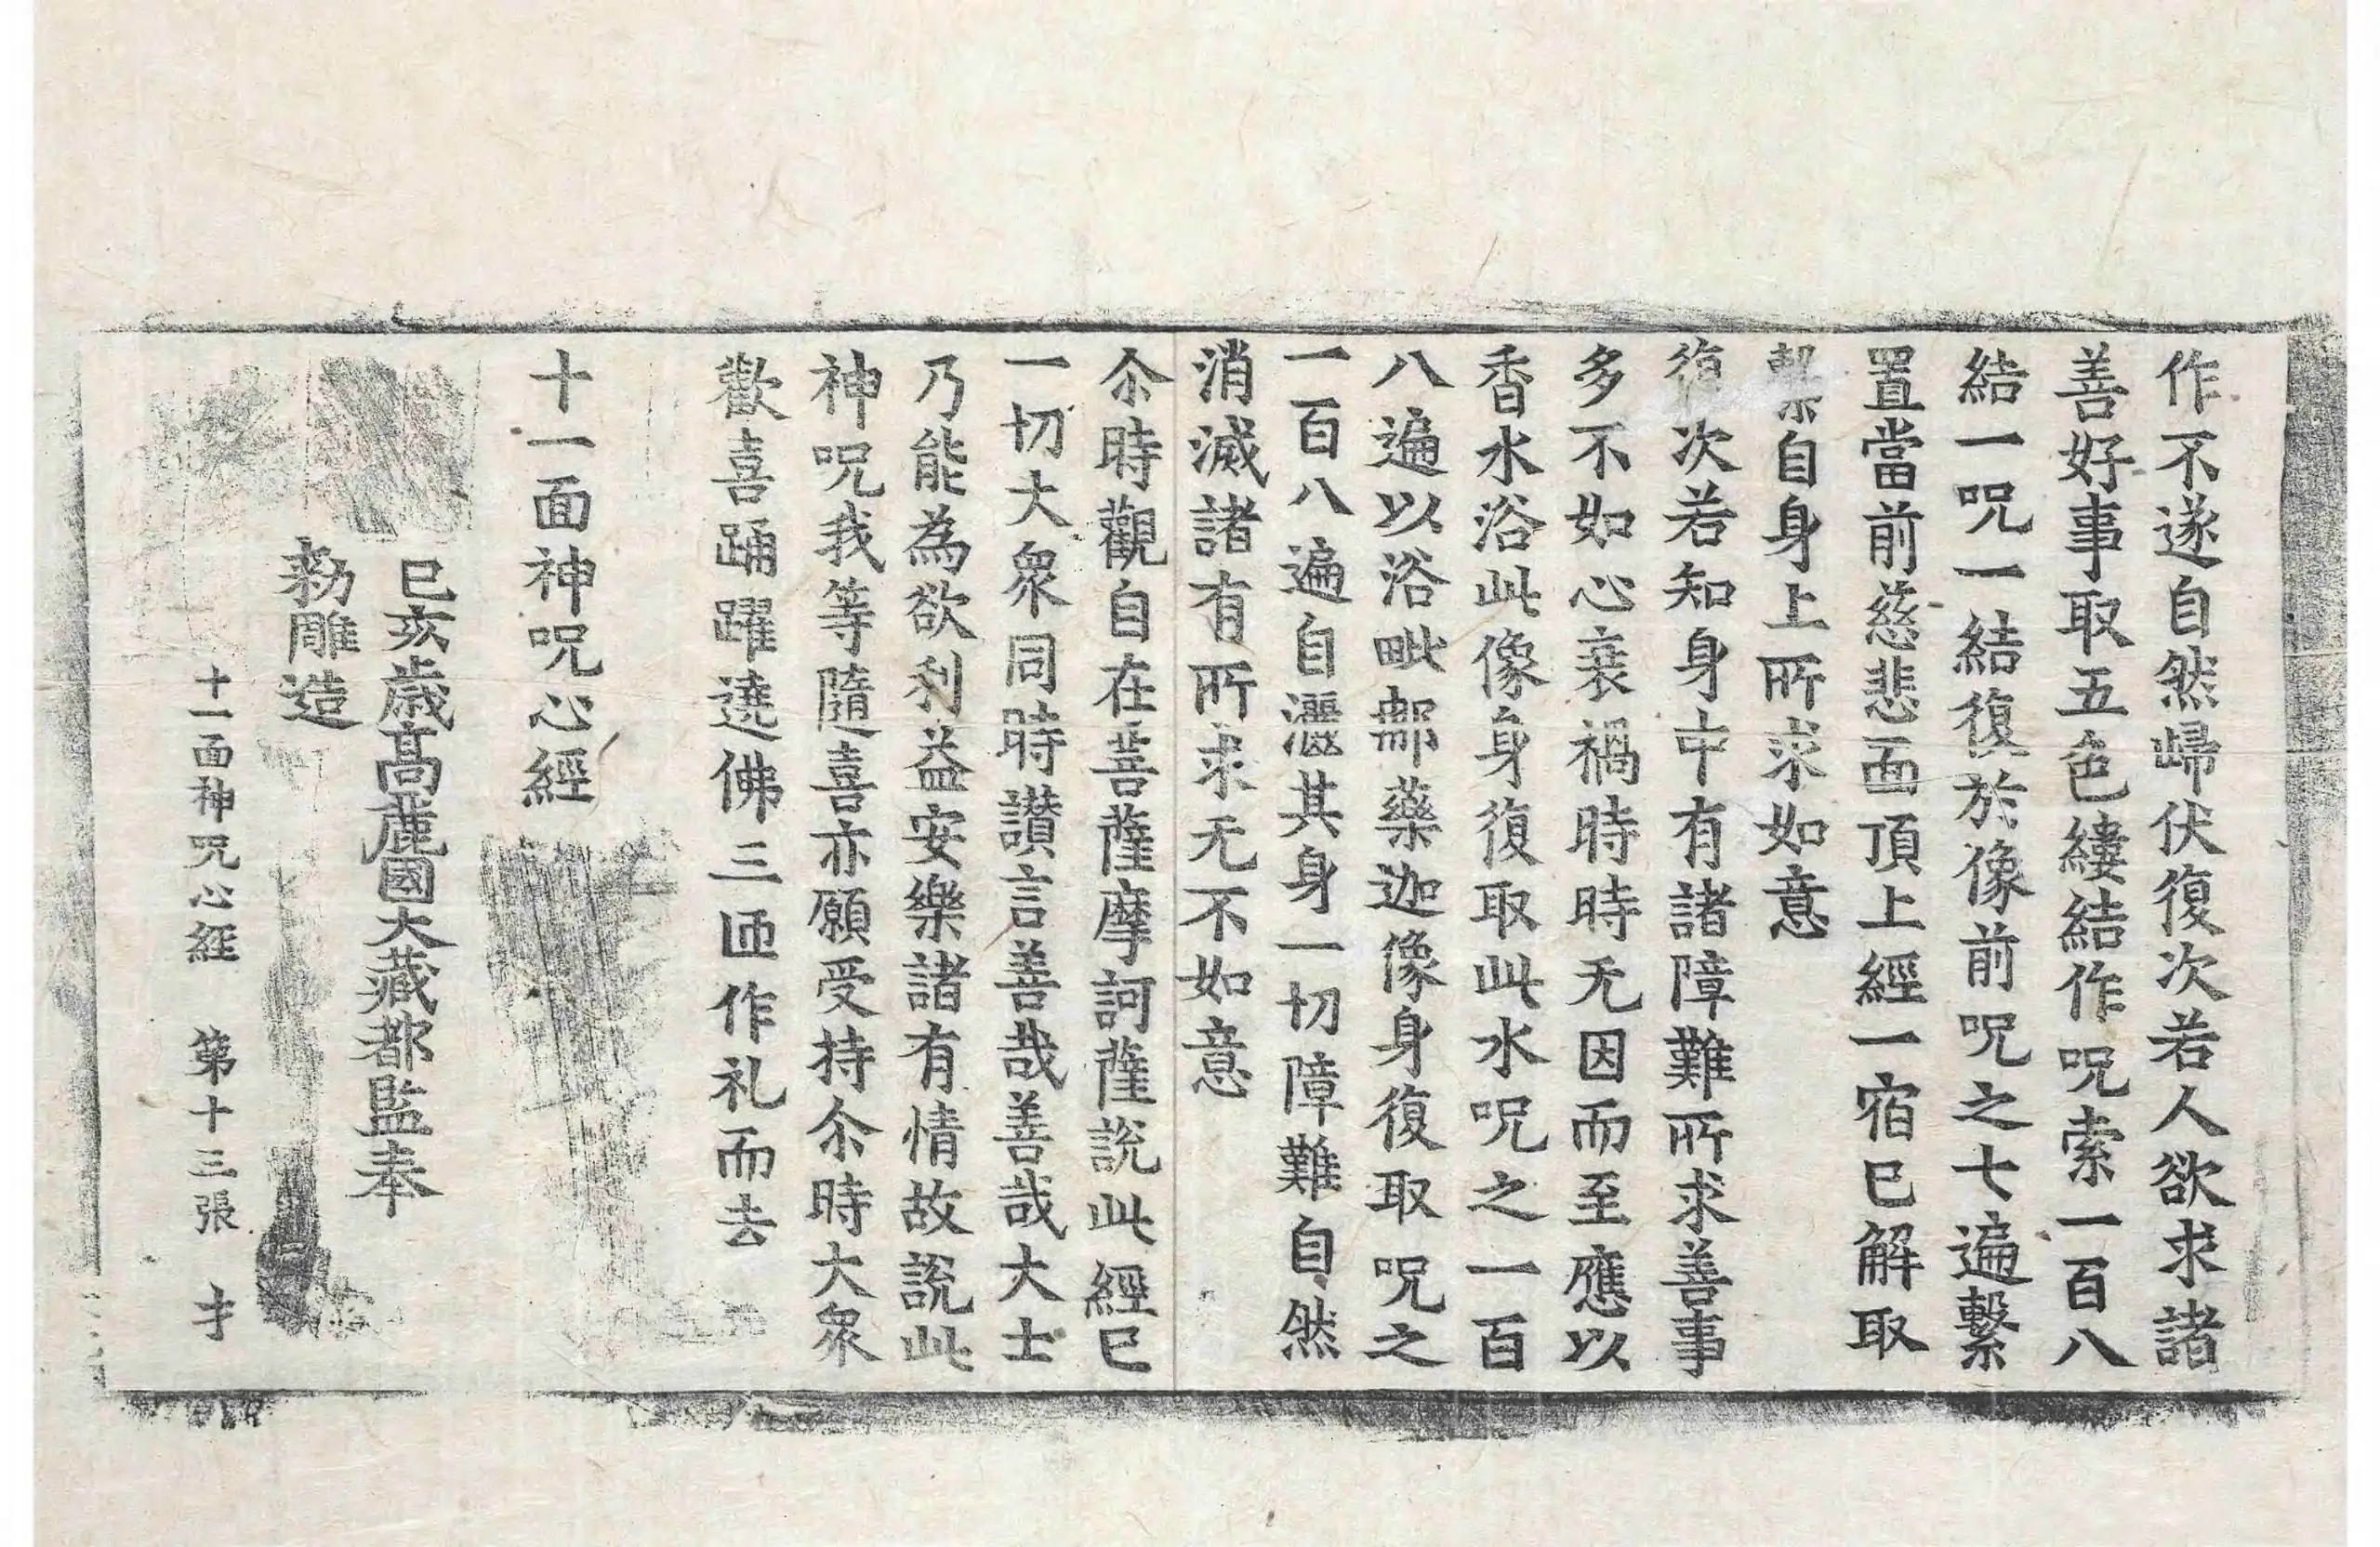 作不遂自然歸伏復次若人欲求諸
善好事取五色縷結作呪索一百八
結一呪一結復於像前呪之七遍繫
置當前慈悲面頂上經一宿已解取
繫自身上所求如意
復次若知身中有諸障難所求善事
多不如心衰禍時時无因而至應以
香水浴此像身復取此水呪之一百
八遍以浴毗那藥迦像身復取呪之
一百八遍自灑其身一切障難自然
消滅諸有所求无不如意
尒時觀自在菩薩摩訶薩說此經已
一切大衆同時讃言善哉善哉大士
乃能為欲利益安樂諸有情故說此
神呪我等隨喜亦願受持尒時大衆
歡喜踊躍遶佛三匝作礼而去
十一面神呪心經
己亥歳髙麗國大藏都監奉
勑雕造
十一面神呪心經 第十三張 才